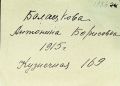 Балацкова
Антонина Борисовна
1915 г.
Кузнечная 169